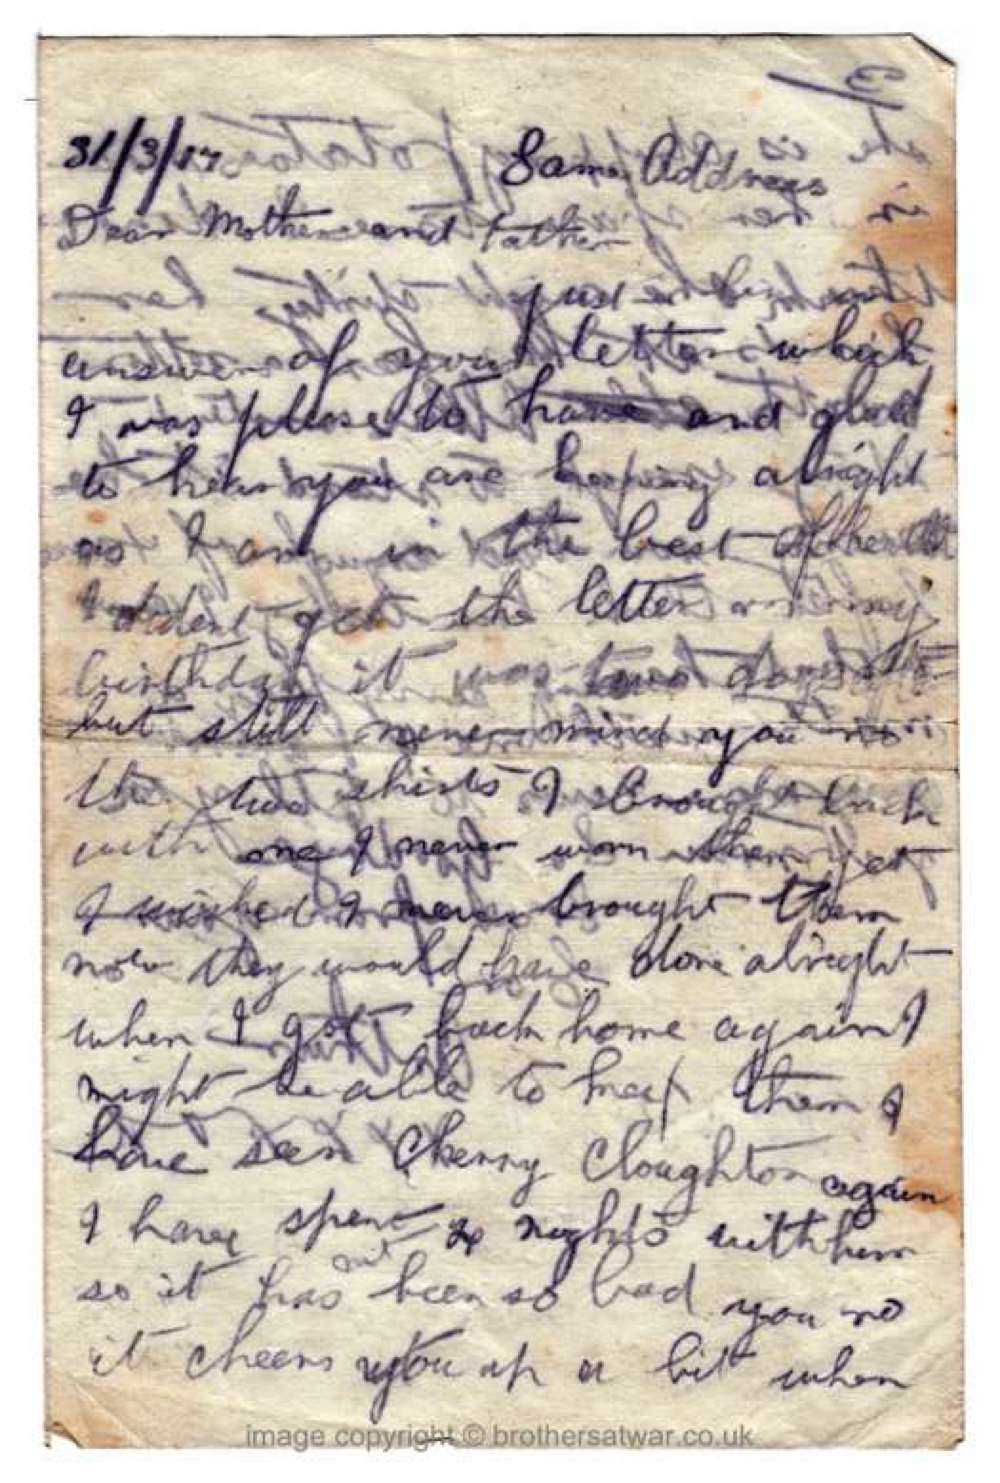 31/3/17 Same Address
Dear Mother and Father
Just a line in
answer of your letter which
I was please to have and glad
to hear you are keeping alright
as I am in the best of health
I dident get the letter on my
birthday it was two days
but still never mind you no
the two shirts I brought back
with me I never worn them yet
I wished I never brought them
now they would have done alright
when I got back home again I
might be able to keep them I
have seen Cherry Cloughton again
I have spent nights with him
so it has not been so bad you no
it cheers you up a bit when
image copyright © brothersatwar.co.uk